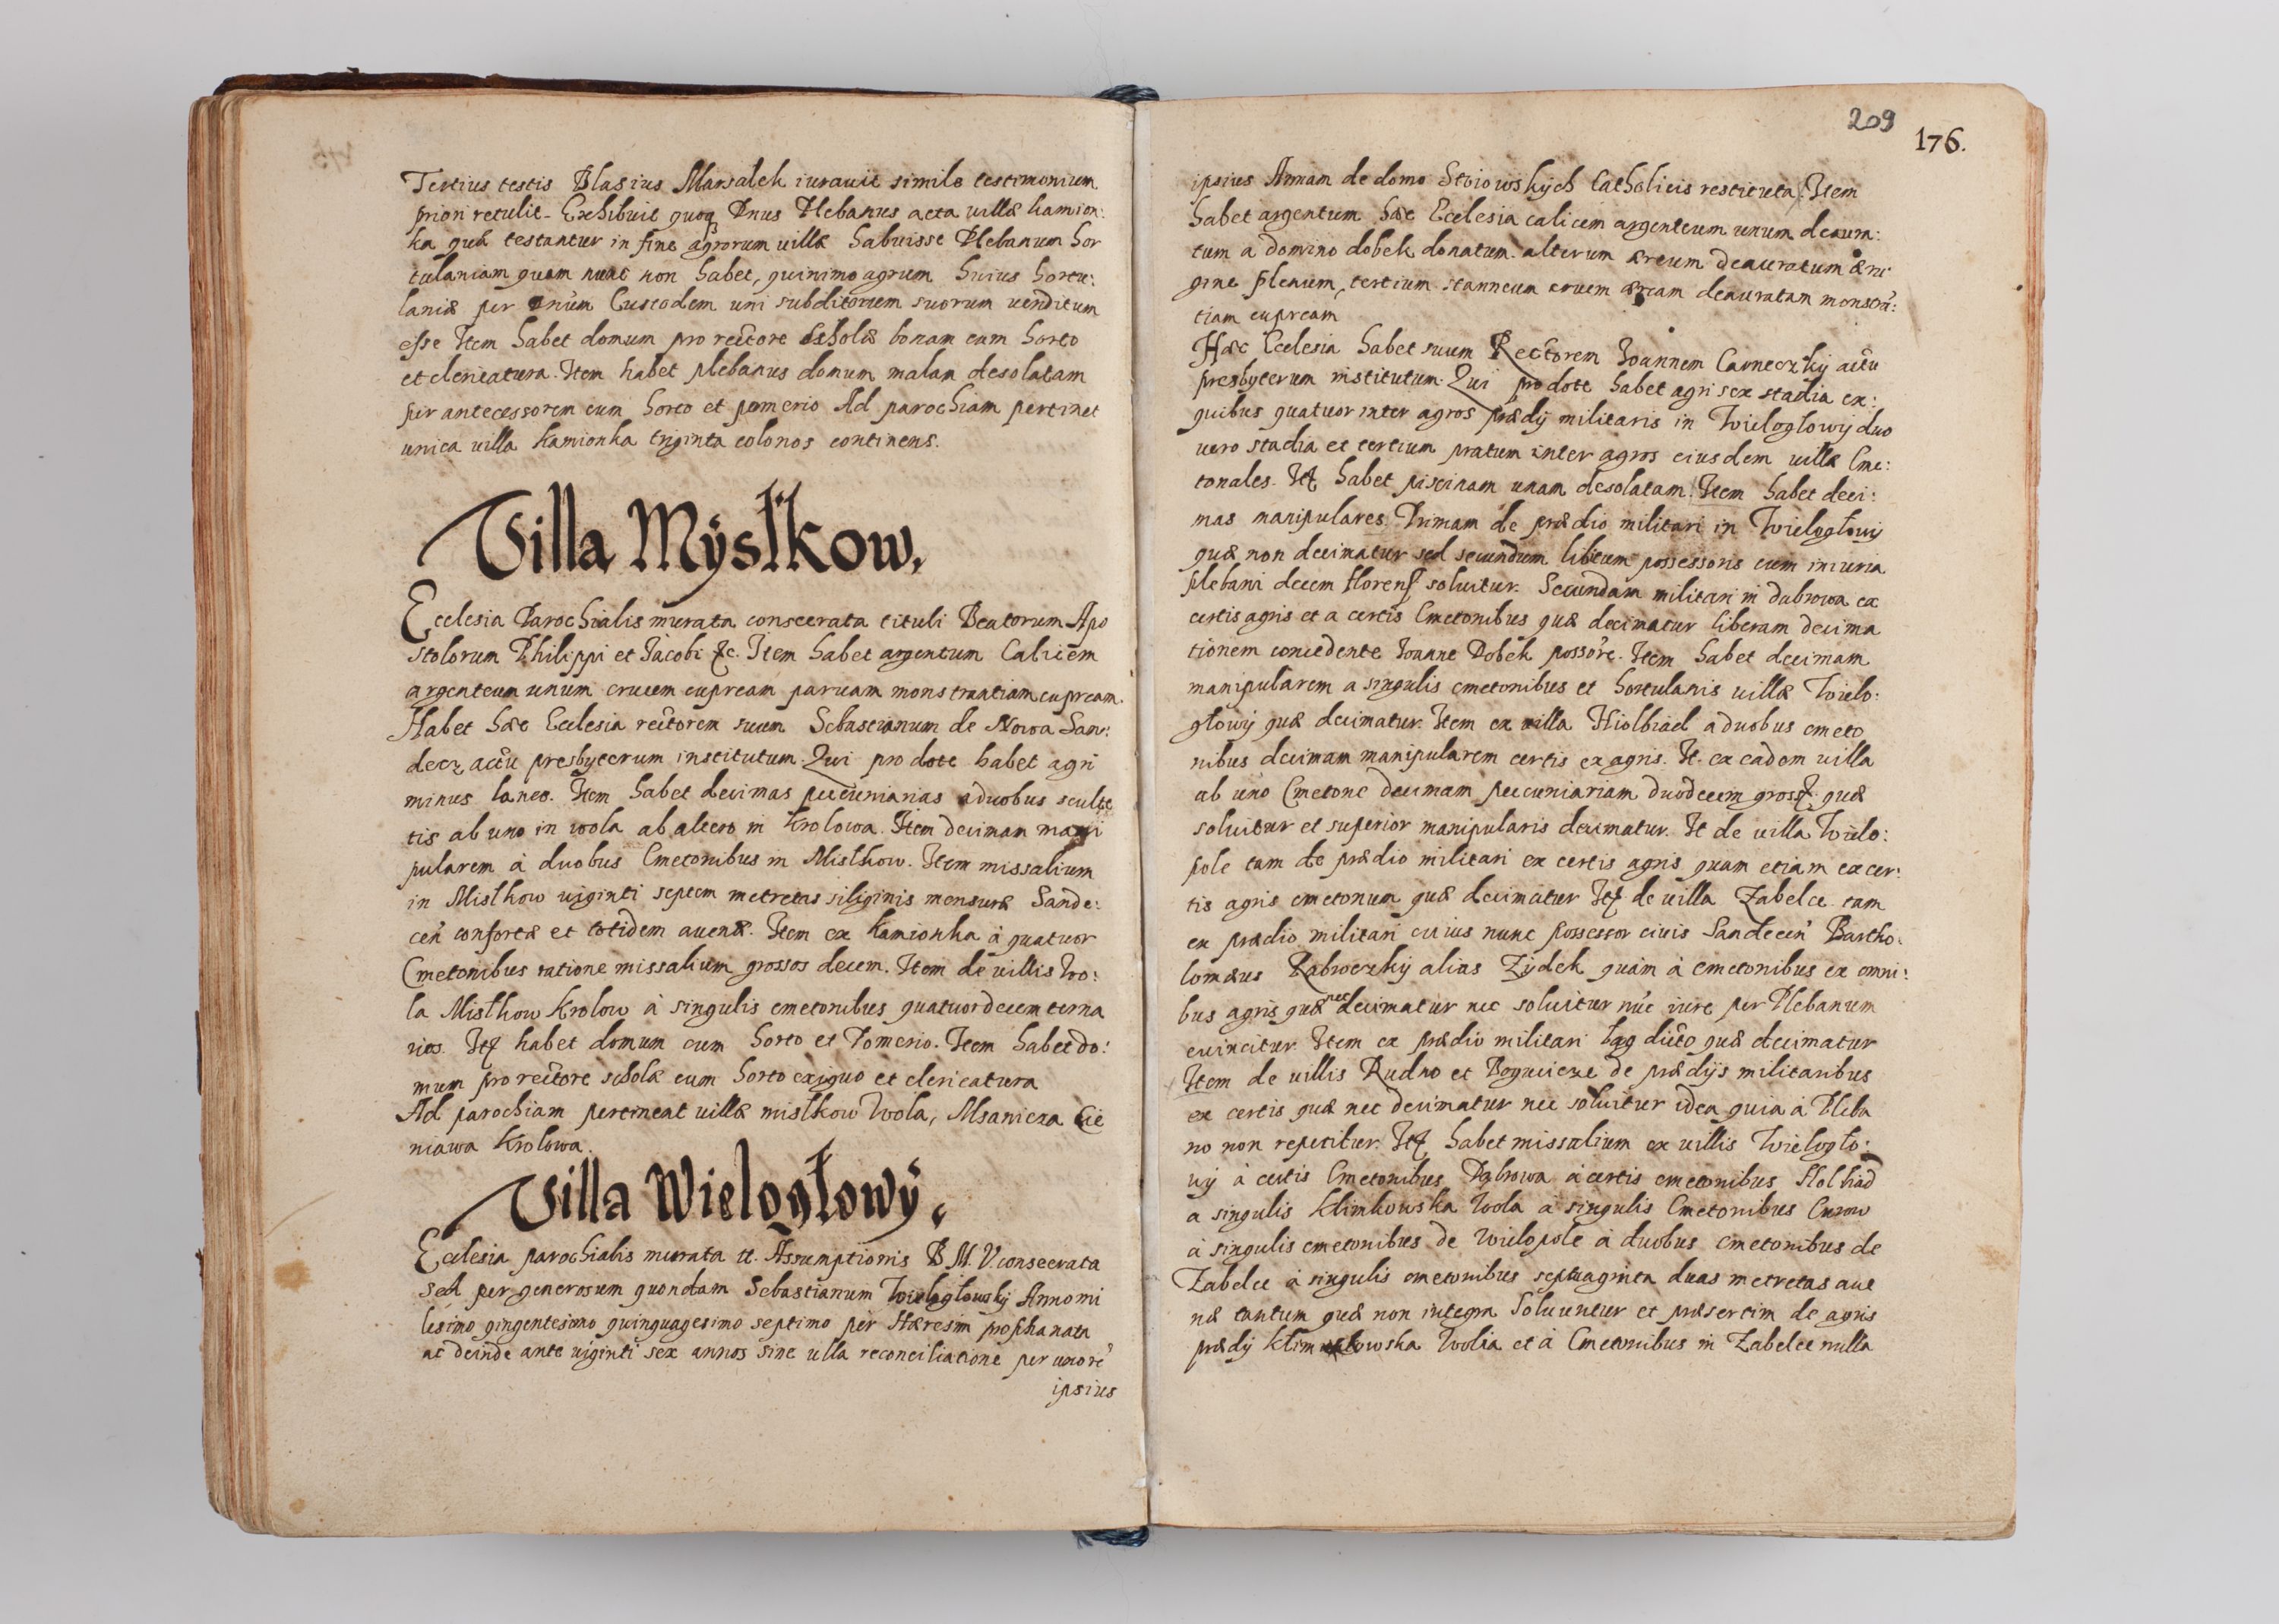 Tertius testis Blasius Marsalek iurauit simile testimonium
priori retulit. Exhibuit quoq Dnus Plebanus acta villæ kamion:
ka quæ testantur in fine agrorum uillæ habuisse Plebanum hor
tulaniam quam nunc non habet, quinimo agrum huius hortu:
laniæ per Custodem uni subditorum suorum uenditum
esse Item habet domum pro rectore scholæ bonam cum horto
et clericatura. Item habet plebanus domum malam desolatam
per antecessorem cum horto et pomerio Ad parochiam pertinet
unica uilla kamionka triginta colonos continens.
Villa Mÿstkow.
Ecclesia Parochialis murata consecrata tituli Beatorum Apo
stolorum Philippi et Jacobi &c. Item habet argentum Calicem
argenteum unum crucem cupream paruam monstrantiam cupream.
Habet hæc Ecclesia rectorem suum Sebastianum de Nowa San:
decz actu presbyterum institutum. Qui pro dote habet agri
minus laneo. Item habet decimas pecuniarias a duobus sculte
tis ab uno in wola ab altero in krolowa. Item decimam mani
pularem à duobus Cmetonibus in Mistkow. Item missalium
in Mistkow uiginti septem metretas siliginis mensuræ Sande:
cen confortæ et totidem auenæ. Item ex kamionka à quatuor
Cmetonibus ratione missalium grossos decem. Item de uillis Wo:
la Mistkow krolow à singulis cmetonibus quatuordecem terna
rios. Itē habet domum cum horto et Pomerio. Item habet do:
mum pro rectore scholæ cum horto exiguo et clericatura
Ad parochiam pertineat uillæ mistkow Wola, Msanicza Cie
niawa krolowa.
Villa Wielogłowÿ.
Ecclesia parochialis murata tt. Assumptionis B. M. V. consecrata
Sed per generosum quondam Sebastianum Wielogłowskÿ Anno mi
lesimo qingentesimo quinquagesimo septimo per Hæresim prophanata
ac deinde ante uiginti sex annos sine ulla reconciliatione per uxorē
ipsius
209
176.
ipsius Annam de domo Stoiowskÿch Catholicis restituta. Item
habet argentum hæc Ecclesia calicem argenteum unum deaura:
tum a domino dobek donatum. alterum æreum deauratum æru
gine plenum, tertium stanneum crucem æream deauratam monstrā:
tiam cupream
Hæc Ecclesia habet suum Rectorem Joannem Czarneczkÿ actu
presbyterum institutum. Qui pro dote habet agri sex stadia ex:
quibus quatuor inter agros prædÿ militaris in Wielogłowÿ duo
uero stadia et tertium pratum inter agros eiusdem uillæ Cme:
tonales. Itē habet piscinam unam desolatam. Item habet deci:
mas manipulares. Primam de prædio militari in Wielogłowÿ
quæ non decimatur sed secundum libitum possessoris cum iniuria
plebani decem floren soluitur. Secundam militari in dabrowa ex
certis agris et a certis Cmetonibus quæ decimatur liberam decima
tionem concedente Joanne Dobek possōre. Item habet decimam
manipularem a singulis cmetonibus et hortulanis uillæ Wielo:
głowÿ quæ decimatur. Item ex uilla Hiolbiad a duobus cmeto
nibus decimam manipularem certis ex agris. It. ex eadem uilla
ab uno Cmetone decimam pecuniariam duodecem gross. quæ
soluitur et superior manipularis decimatur. It de uilla Wielo:
pole tam de prædio militari ex certis agris quam etiam ex cer:
tis agris cmetonum quæ decimatur Itē de uilla Zabelce tam
ex prædio militari cuius nunc possessor ciuis Sandecen Bartho:
lomæus Rabroczkÿ alias Zÿdek quàm à cmetonibus ex omni:
bus agris quæ nec decimatur nec soluitur nūc iure per Plebanum
euincitur. Item ex prædio militari Łag dicto quæ decimatur
Item de uillis Rudno et Boguicze de prædÿs militaribus
ex certis quæ nec decimatur nec soluitur idea quia à Pleba
no non repetitur. Itē habet missalium ex uillis Wielogło:
uÿ à certis Cmetonibus Dabrowa à certis cmetonibus Holbiad
a singulis klimkowska Wola à singulis Cmetonibus Curow
à singulis cmetonibus de Wielopole à duobus cmetonibus de
Zabelce à singulis cmetonibus septuaginta duas metretas aue
næ tantum quæ non integra soluuntur et præsertim de agris
prædÿ klimkowska Wolia et à Cmetonibus in Zabelce nulla